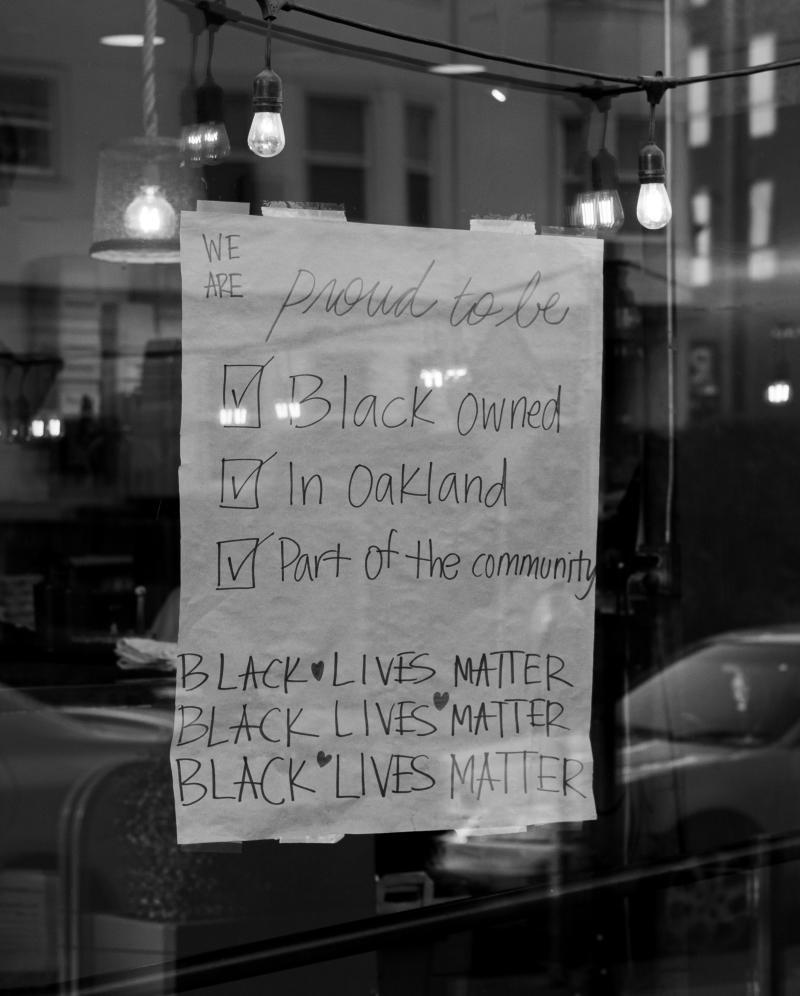 WE
ARE
proud to be
Black owned
In Oakland
Part of the community
BLACK LIVES MATTER
BLACK LIVES MATTER
BLACK LIVES MATTER